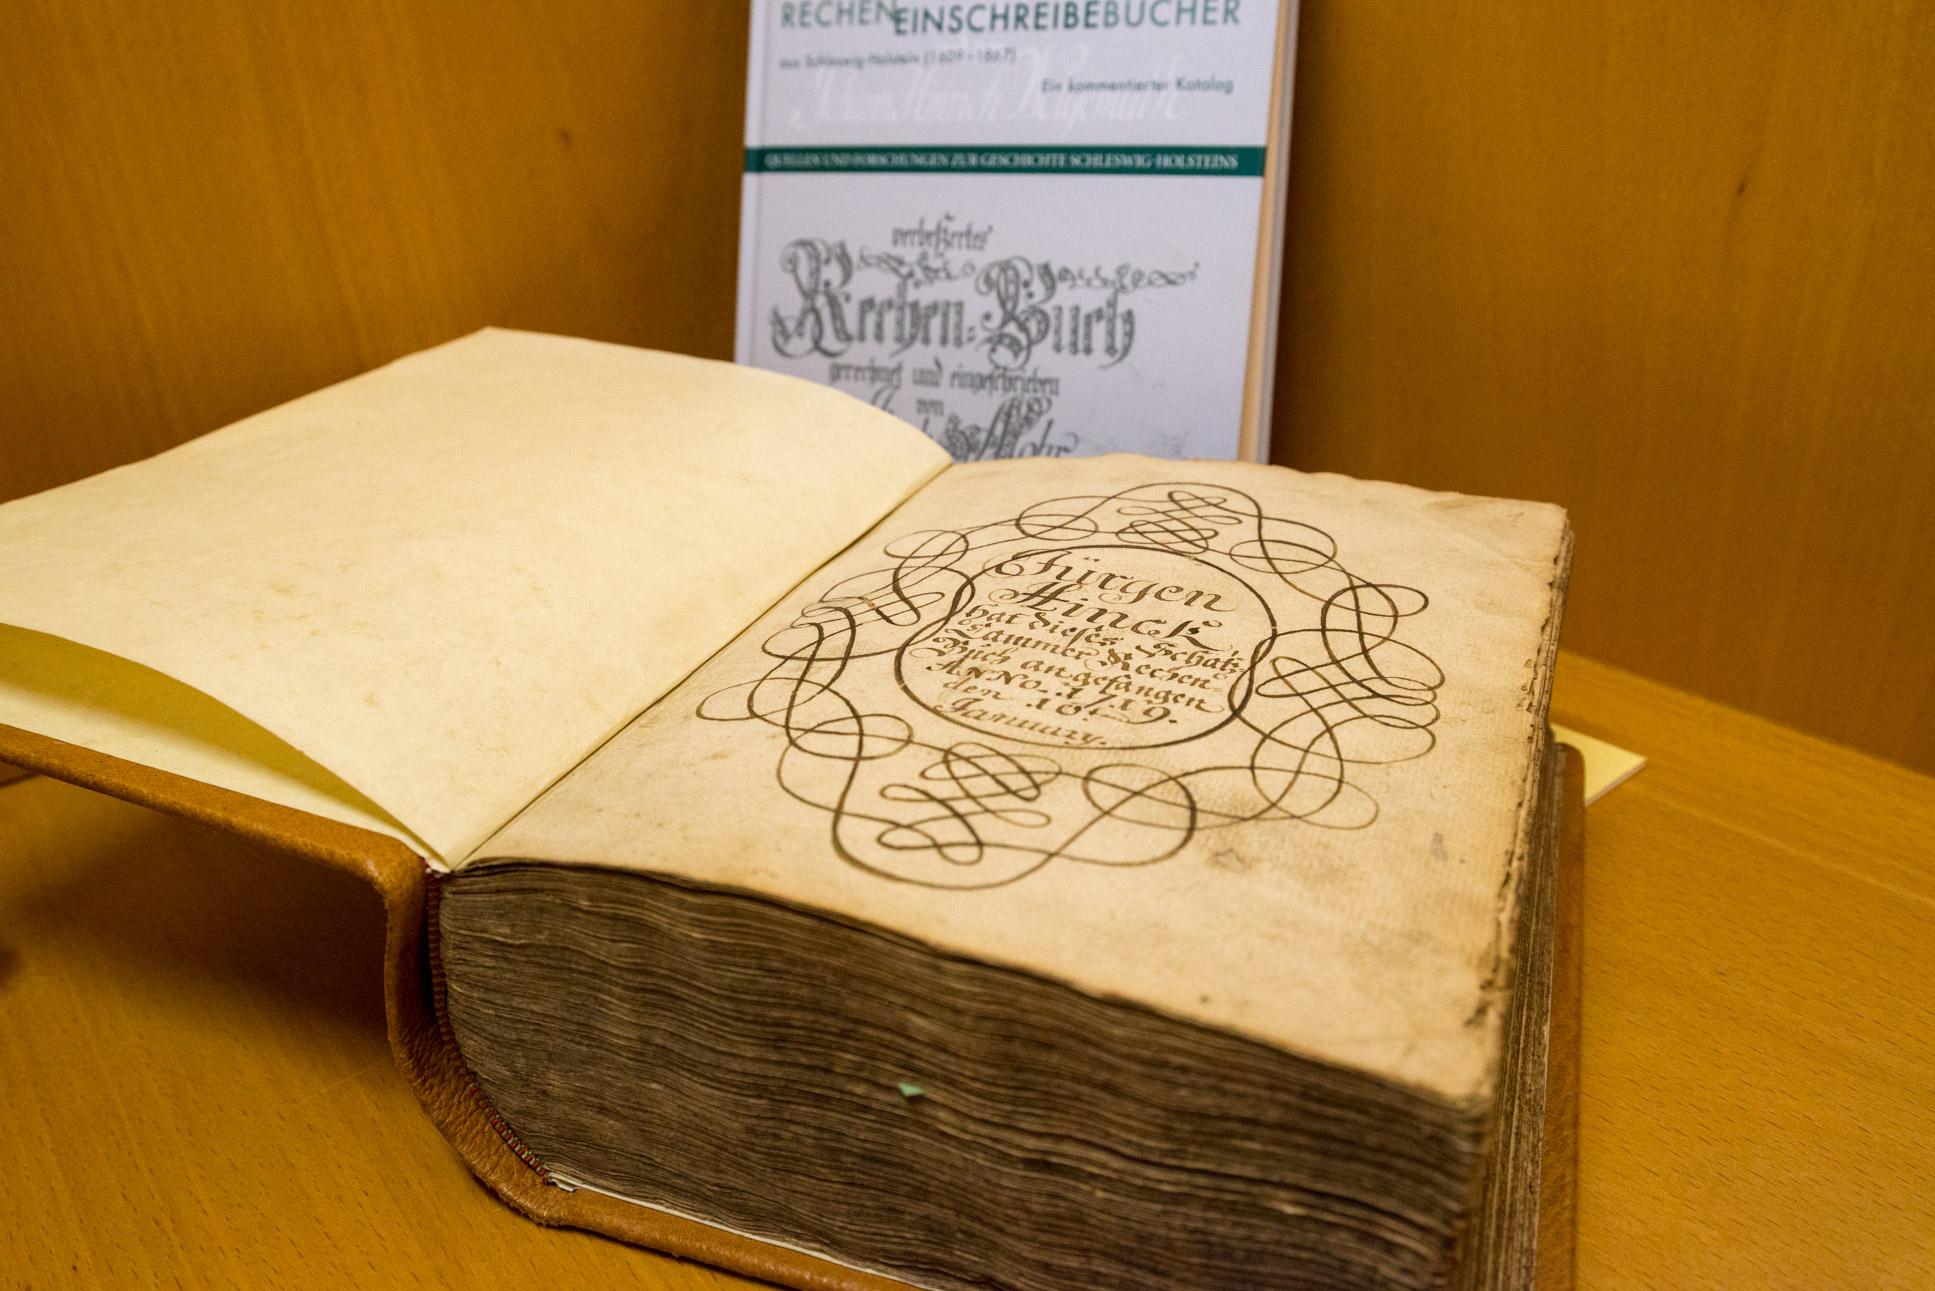 RECHENEINSCHREIBEBÜCHER
aus Schleswig-Holstein (1609–1867)
Ein kommentierter Katalog
Johann Hinrich
QUELLEN UND FORSCHUNGEN ZUR GESCHICHTE SCHLESWIG-HOLSTEINS
verbeßertes
Rechen=Buch
gerechnet und eingeschrieben
von
Mohr
Jürgen
Hinck
hat dieses Schatz
Kammer Rechen=
Buch angefangen
ANNO. 1719.
den 10.
January.